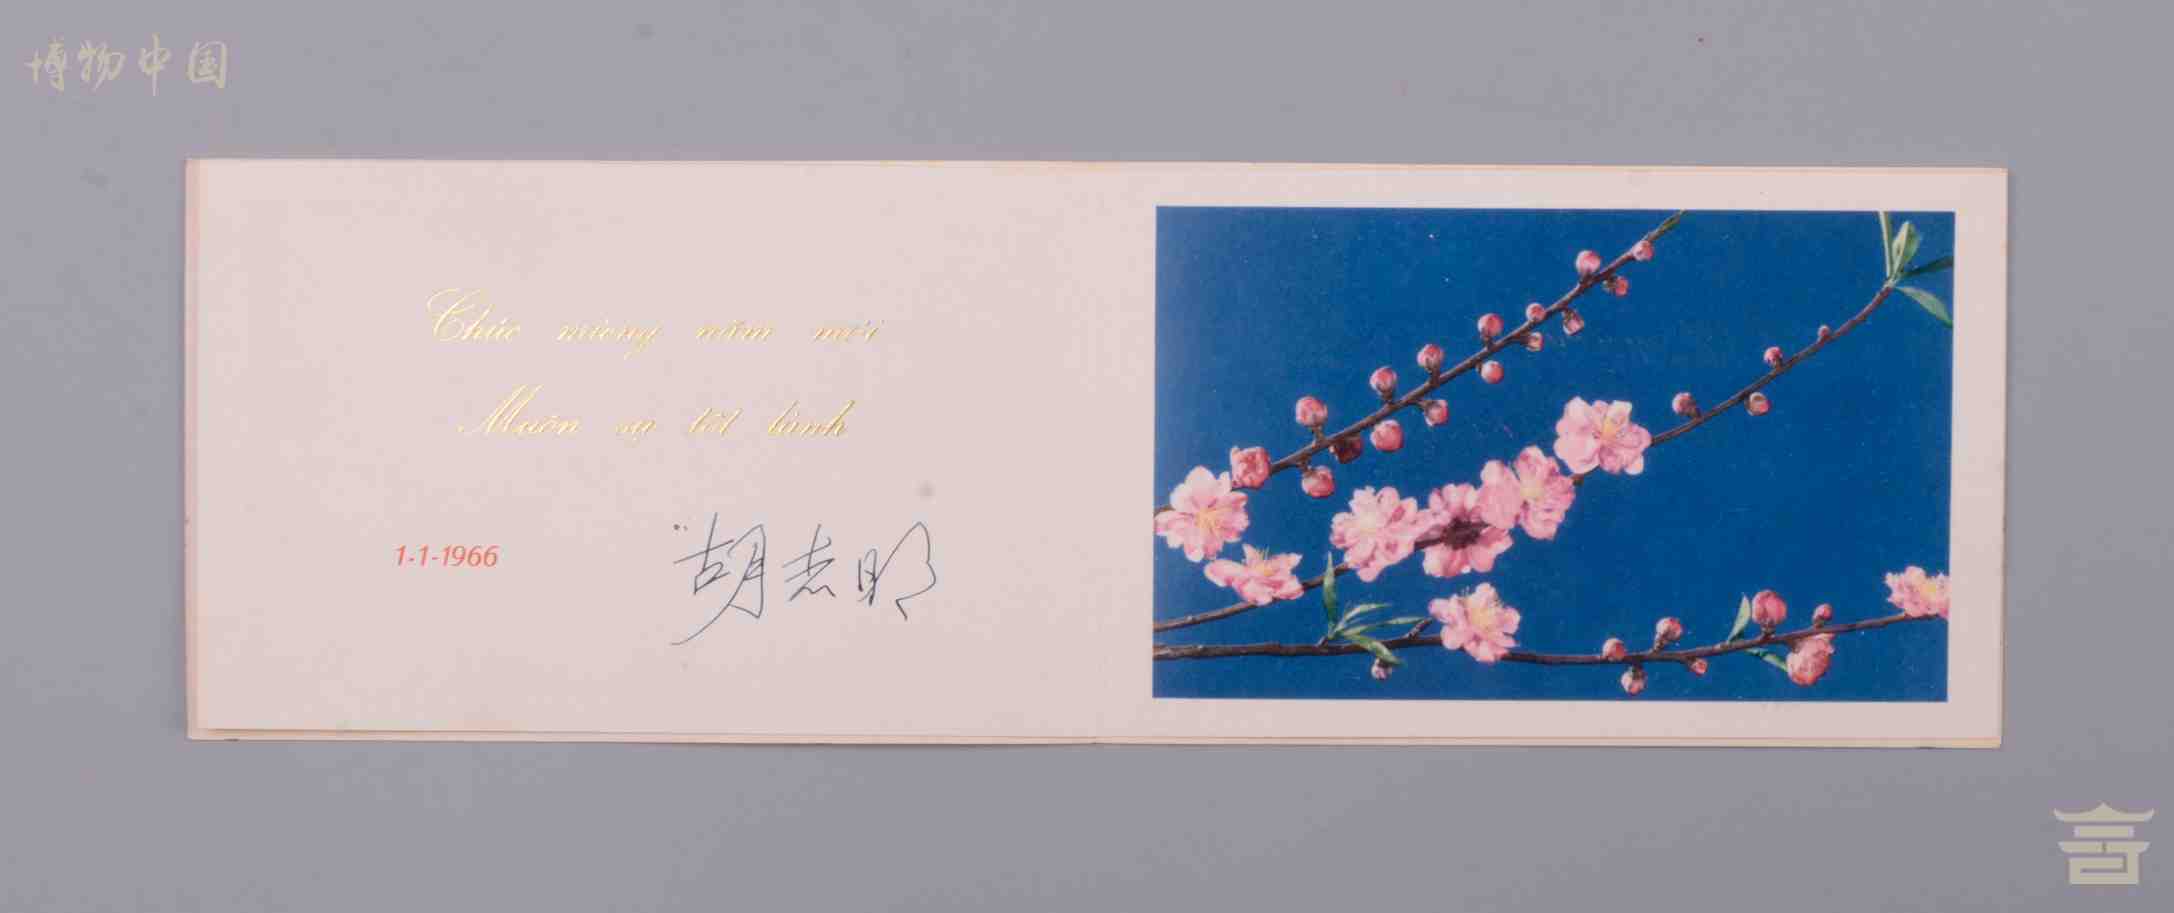 博物中国
Chúc mừng năm mới
Muôn sự tốt lành
1-1-1966
胡志明